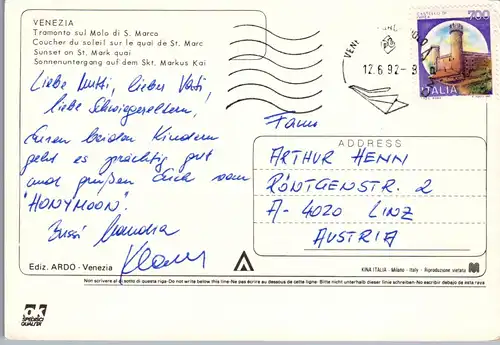 VENEZIA
Tramonto sul Molo di S. Marco
Coucher du soleil sur le quai de St. Marc
Sunset on St. Mark quai
Sonnenuntergang auf dem Skt. Markus Kai
Liebe Mutti, lieber Vati,
liebe Schwiegereltern!
Euren beiden Kindern
geht es prächtig gut
und grüßen Euch vom
"HONYMOON".
Bussi
Klaus
12.6.92-9
700
ITALIA
Fam.
ADDRESS
ARTHUR HENN
RÖNTGENSTR. 2
A-4020 LINZ
AUSTRIA
Ediz. ARDO - Venezia
KINA ITALIA - Milano - Italy - Riproduzione vietata
Non scrivere al di sotto di questa riga-Do not write below this line-Ne pas écrire au dessous de cette ligne- Bitte nicht unterhalb dieser linie schreiben-No escribir debajo de esta raya